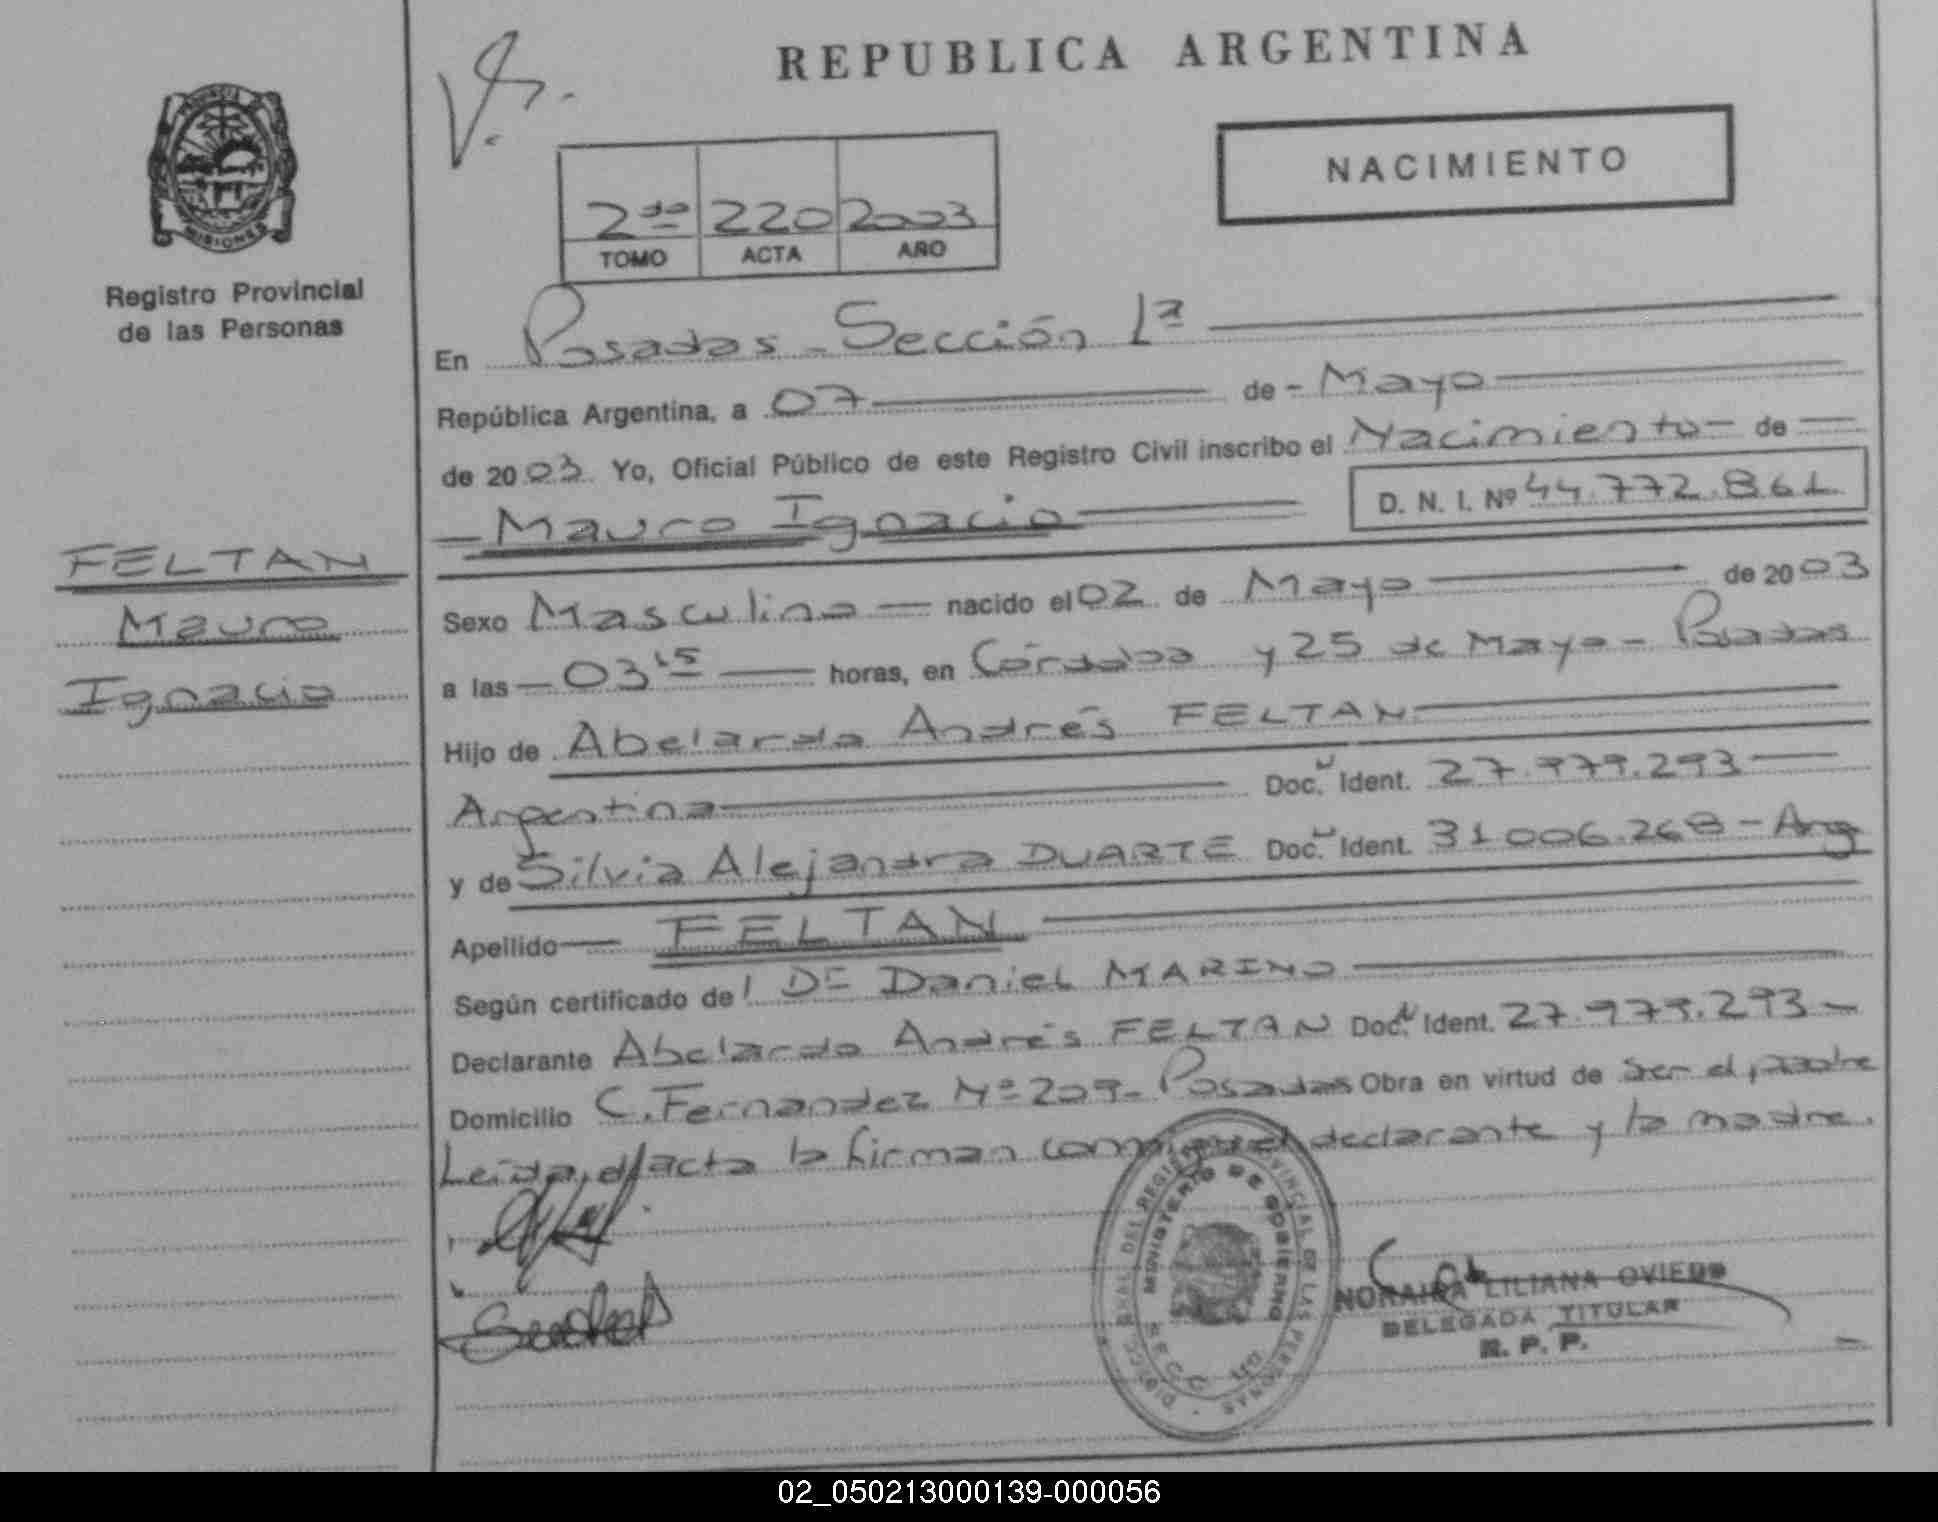 REPUBLICA ARGENTINA
PROVINCIA DE
MISIONES
Registro Provincial
de las Personas
NACIMIENTO
2do 220 2003
TOMO ACTA AÑO
En Posadas - Sección 1ª
República Argentina, a 07 de - Mayo
de 2003. Yo, Oficial Público de este Registro Civil inscribo el Nacimiento - de
Mauro Ignacio D. N. I. Nº 44.772.861
FELTAN
Mauro
Ignacio
Sexo Masculino nacido el 02 de Mayo de 2003
a las 03 15 horas, en Córdoba y 25 de Mayo - Posadas
Hijo de Abelardo Andrés FELTAN
Argentina Doc. Ident. 27.979.293
y de Silvia Alejandra DUARTE Doc. Ident. 31006.268 - Arg
Apellido FELTAN
Según certificado de l Dr Daniel MARINO
Declarante Abelardo Andrés FELTAN Doc. Ident. 27.979.293 -
Domicilio C. Fernandez Nº 209 - Posadas Obra en virtud de ser el padre
Leida el acta la firman conmigo el declarante y la madre.
MINISTERIO DE GOBIERNO
NORAIRA LILIANA OVIEDO
DELEGADA TITULAR
R. P. P.
02_050213000139-000056